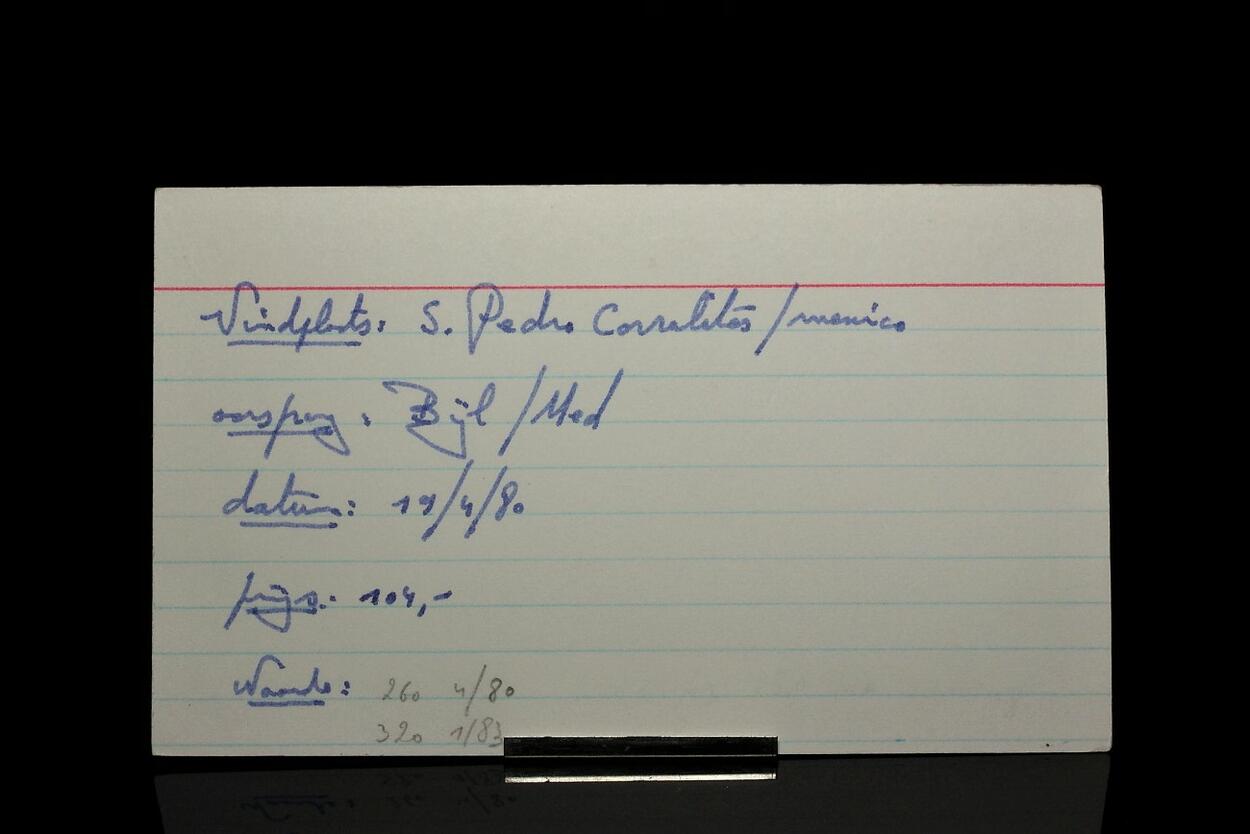 Vindplaats: S. Pedro Corralitos / mexico
oorsprong: Bijl / Med
datum: 19/4/80
prijs: 104,-
Waarde: 260 4/80
320 1/83